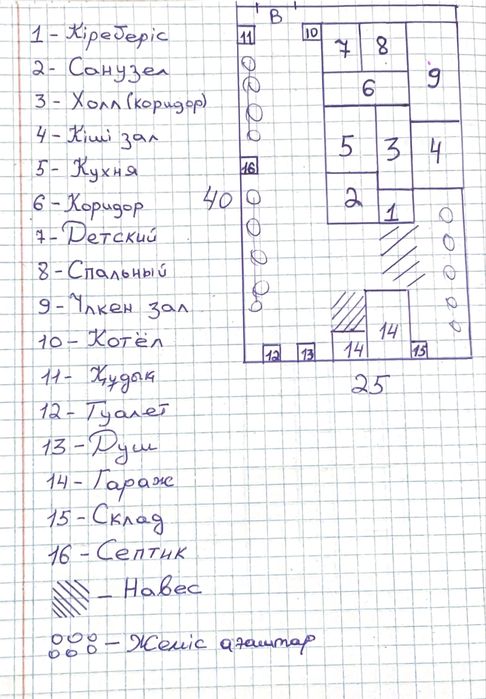 1 - Кіреберіс
2 - Санузел
3 - Холл (коридор)
4 - Кіші зал
5 - Кухня
6 - Коридор
7 - Детский
8 - Спальный
9 - Үлкен зал
10 - Котёл
11 - Құдық
12 - Туалет
13 - Душ
14 - Гараж
15 - Склад
16 - Септик
- Навес
- Жеміс ағаштар
В
11 10 7 8
9
6
5 3 4
16
40
2 1
14
12 13 14 15
25